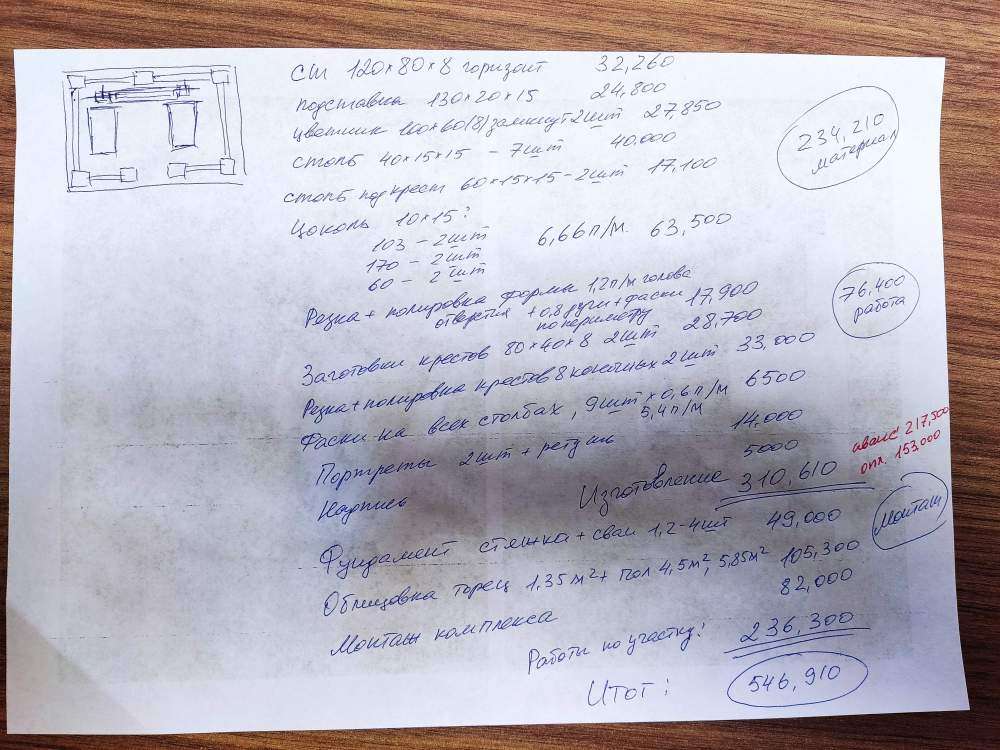 ст 120×80×8 горизонт 32,260
подставка 130×20×15 24,800
цветник 100×60(8) замкнут 2шт 27,850
столб 40×15×15 - 7шт 40,000
столб под крест 60×15×15 - 2шт 17,100
Цоколь 10×15:
103 - 2шт 6,66 п/м. 63,500
170 - 2шт
60 - 2шт
234,210
материал
Резка + полировка формы 1,2 п/м голова
отверстия + 0,8 ручн + фаски 17,900
по периметру
Заготовки крестов 80×40×8 2шт 28,700
Резка + полировка крестов 8 конечных 2шт 33,000
Фаски на всех столбах, 9шт × 0,6 п/м 6500
5,4 п/м
Портреты 2шт + ретушь 14,000
Надпись 5000
76,400
работа
Изготовление 310,610
аванс 217,500
опл. 153,000
Фундамент стяжка + сваи 1,2 - 4шт 49,000
Облицовка торец 1,35 м² + пол 4,5 м², 5,85 м² 105,300
Монтаж комплекса 82,000
монтаж
Работы по участку: 236,300
Итог: 546,910